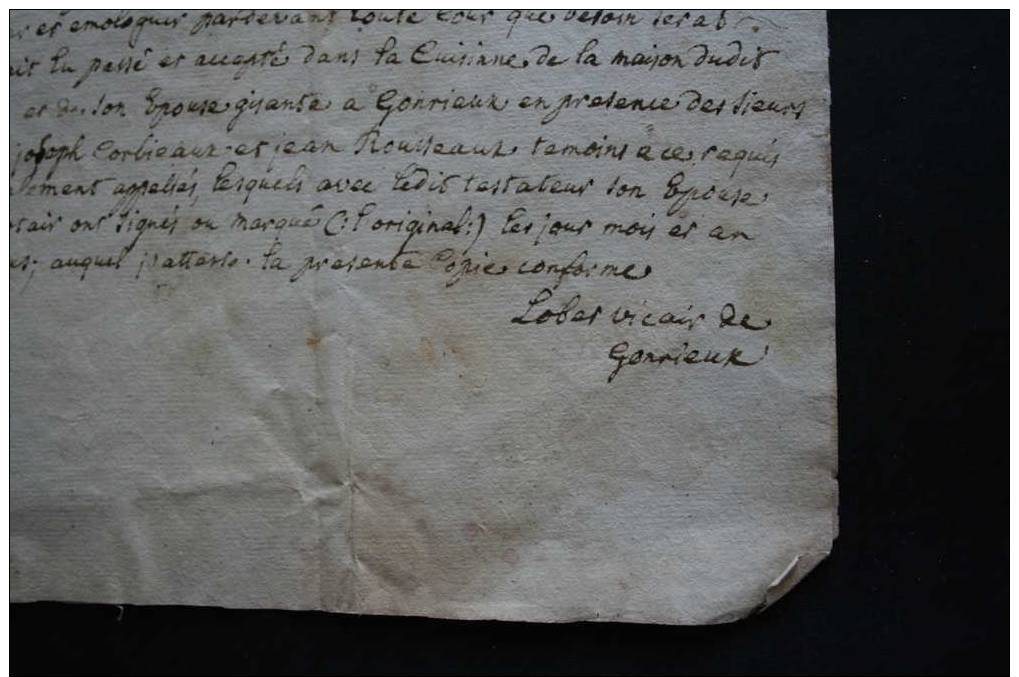 et emologuer pardevant toute Cour que besoin serat
lu passé et accepté dans la Cuisinne de la maison dudit
et de son Epouse gisante a Gonrieux en presence des sieurs
joseph Corbieaux et jean Rousseaux temoins a ce requis
appellés, lesquels avec ledit testateur son Epouse
ont signés ou marqué (: l'original :) les jour mois et an
auquel j'atteste la presente Copie conforme
Lobet vicair de
Gonrieux